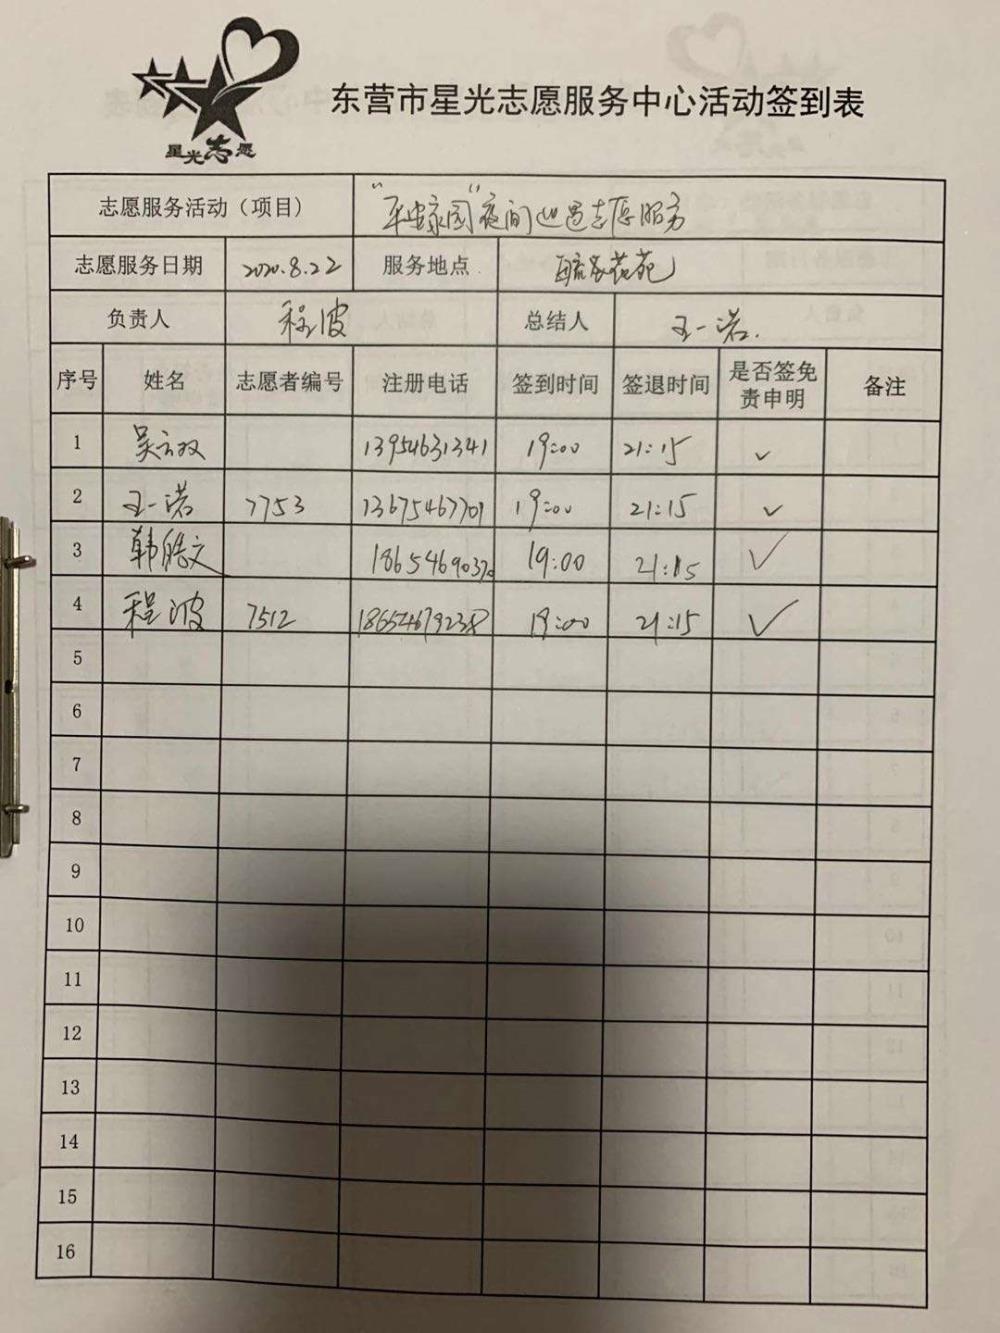 星光志愿
东营市星光志愿服务中心活动签到表
志愿服务活动（项目） “平安家园”夜间巡逻志愿服务
志愿服务日期 2020.8.22 服务地点 花苑
负责人 程波 总结人 王一诺.
序号 姓名 志愿者编号 注册电话 签到时间 签退时间 是否签免责申明 备注
1 吴云双 13954631341 19:00 21:15 ✓
2 王一诺 7753 13675467701 19:00 21:15 ✓
3 韩皓文 1865469037 19:00 21:15 ✓
4 程波 7512 18654679238 19:00 21:15 ✓
5
6
7
8
9
10
11
12
13
14
15
16